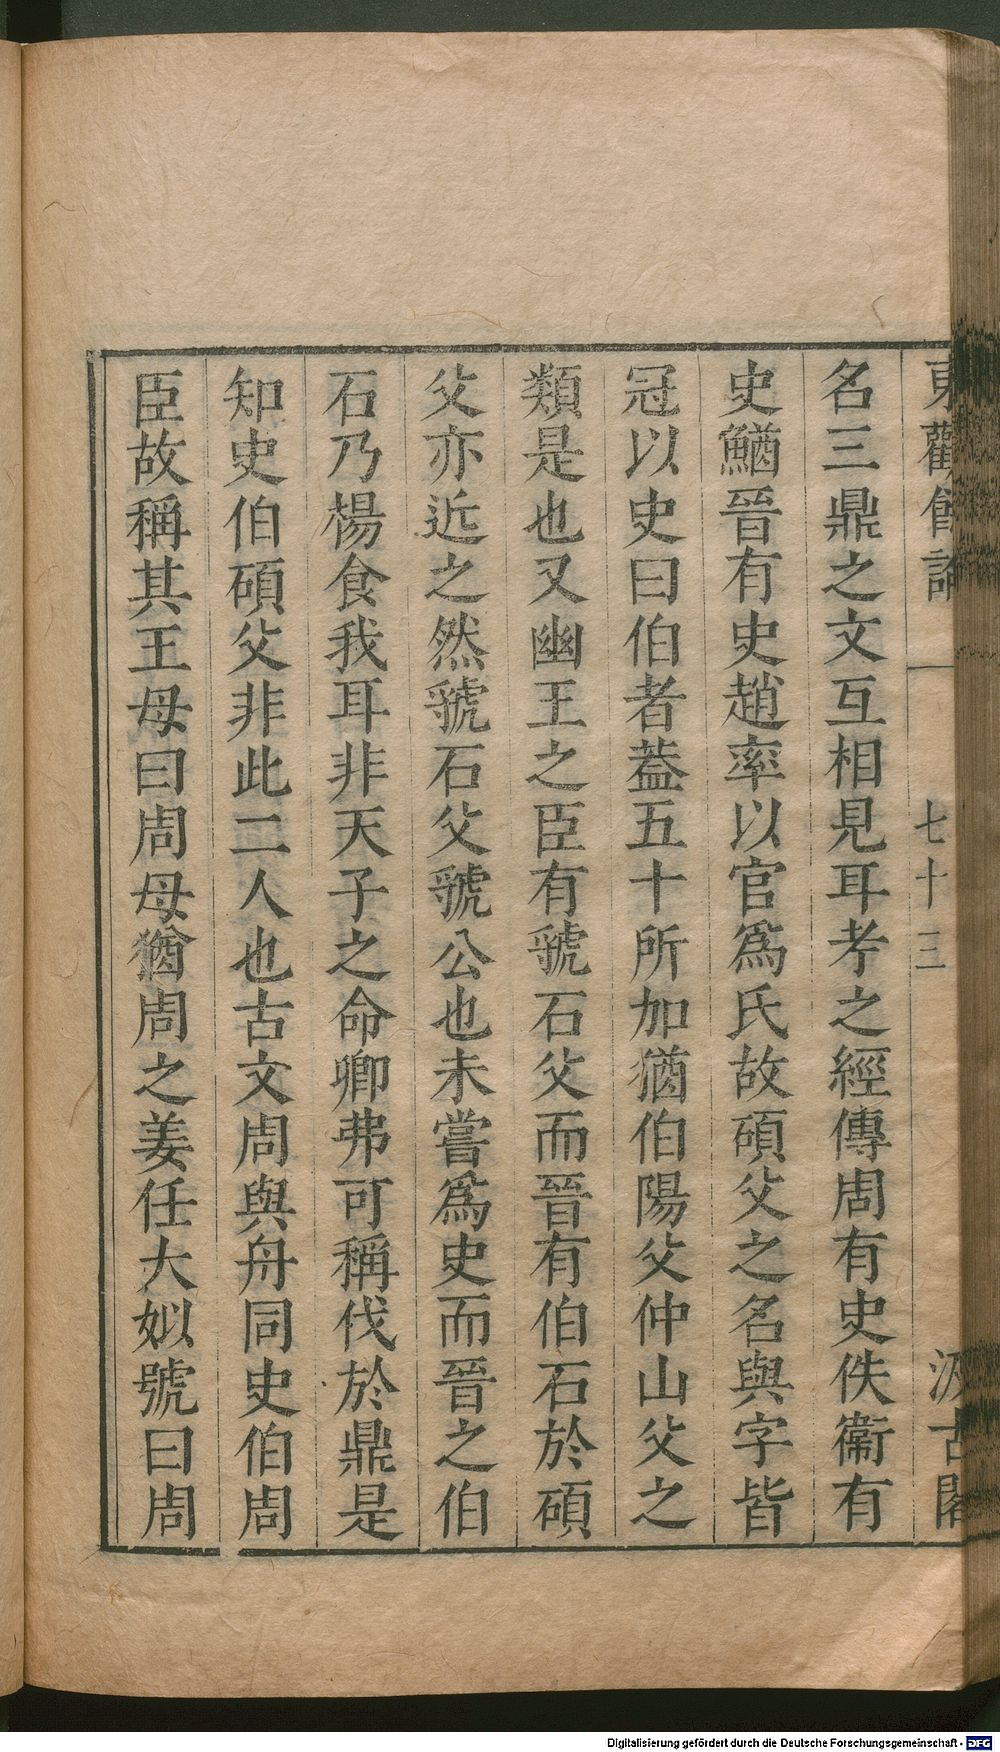 東觀餘論
七十三
汲古閣
名三鼎之文互相見耳考之經傳周有史佚衞有
史鰌晉有史趙率以官爲氏故碩父之名與字皆
冠以史曰伯者葢五十所加猶伯陽父仲山父之
類是也又幽王之臣有虢石父而晉有伯石於碩
父亦近之然虢石父虢公也未嘗爲史而晉之伯
石乃楊食我耳非天子之命卿弗可稱伐於鼎是
知史伯碩父非此二人也古文周與舟同史伯周
臣故稱其王母曰周母猶周之姜任大姒號曰周
Digitalisierung gefördert durch die Deutsche Forschungsgemeinschaft - DFG